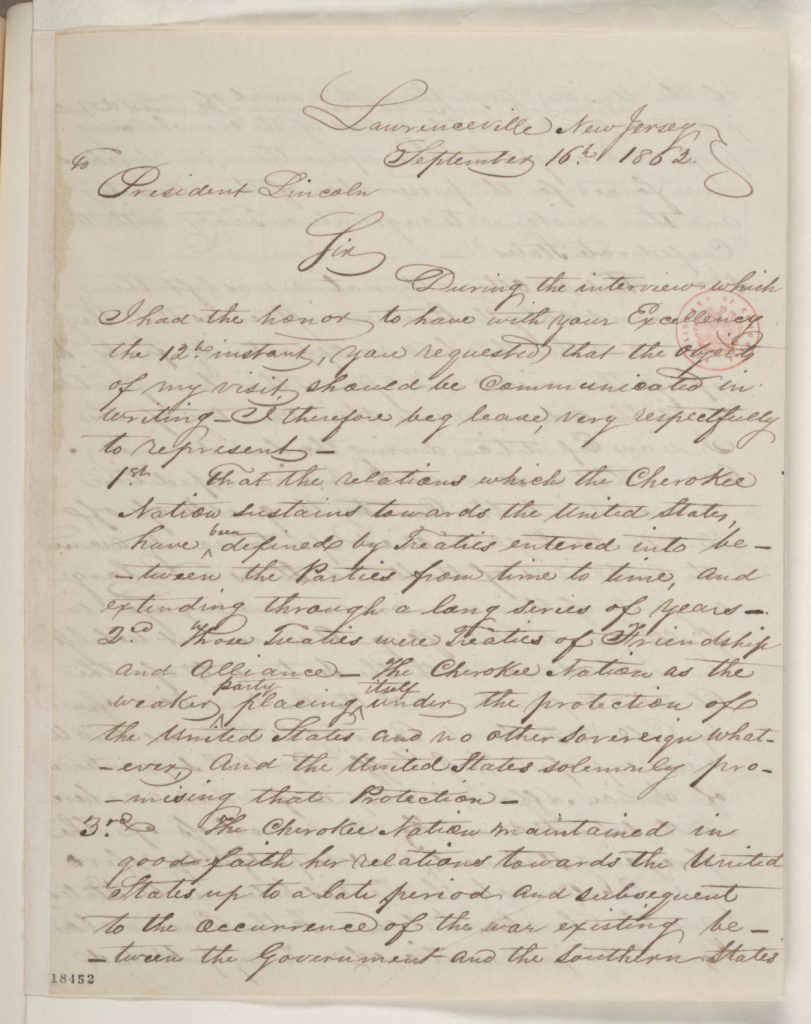 Lawrenceville New Jersey
September 16th 1862.
To
President Lincoln
Sir
During the interview which
I had the honor to have with your Excellency
the 12th instant, you requested that the objects
of my visit, should be communicated in
writing – I therefore beg leave, very respectfully
to represent –
1st. That the relations which the Cherokee
Nation sustains towards the United States,
have been defined by Treaties entered into be-
-tween the Parties from time to time, and
extending through a long series of years –.
2nd. Those Treaties were Treaties of Friendship
and Alliance – The Cherokee Nation as the
weaker party placing itself under the protection of
the United States and no other Sovereign what-
-ever, and the United States solemnly pro-
-mising that Protection –
3rd. The Cherokee Nation maintained in
good faith her relations towards the United
States up to a late period and subsequent
to the occurrence of the war existing be-
-tween the Government and the Southern States
18452